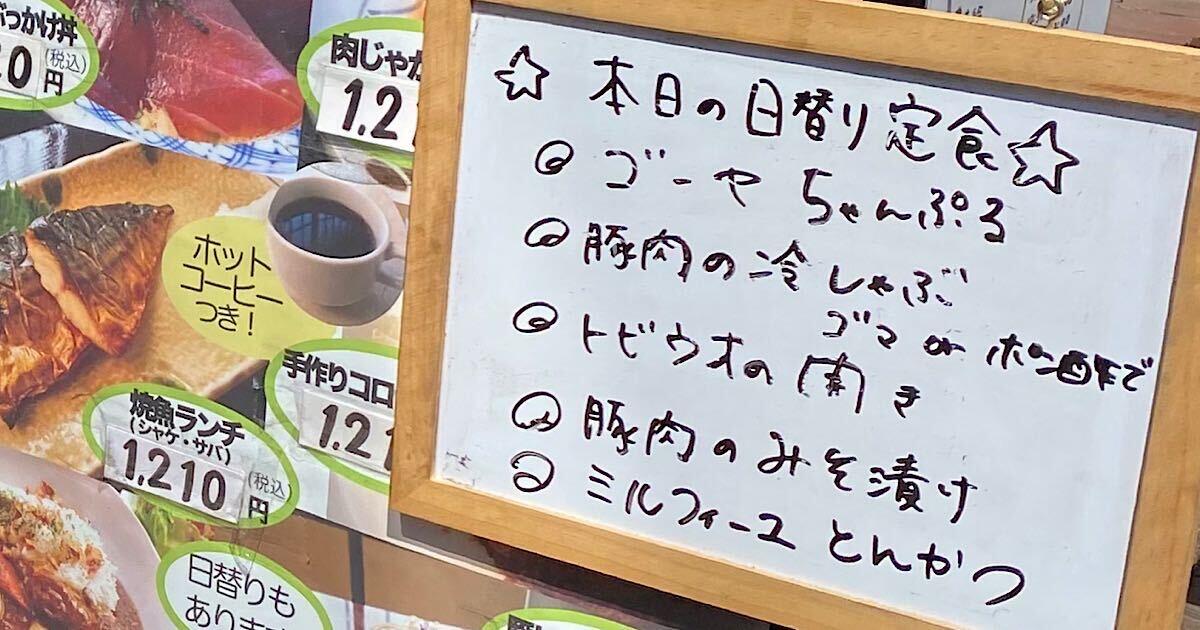 ぶっかけ丼
0円
(税込)
肉じゃが
1.21
ホット
コーヒー
つき!
手作りコロ
1.21
焼魚ランチ
(シャケ・サバ)
1,210円
(税込)
日替りも
あります
☆ 本日の日替り定食 ☆
ゴーヤちゃんぷる
豚肉の冷しゃぶ
ゴマ or ポン酢で
トビウオの開き
豚肉のみそ漬け
ミルフィーユとんかつ